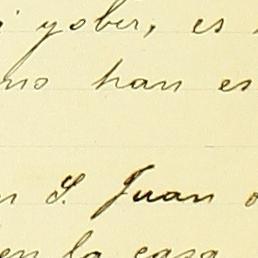 yober, es
no han es
n S. Juan
en la casa